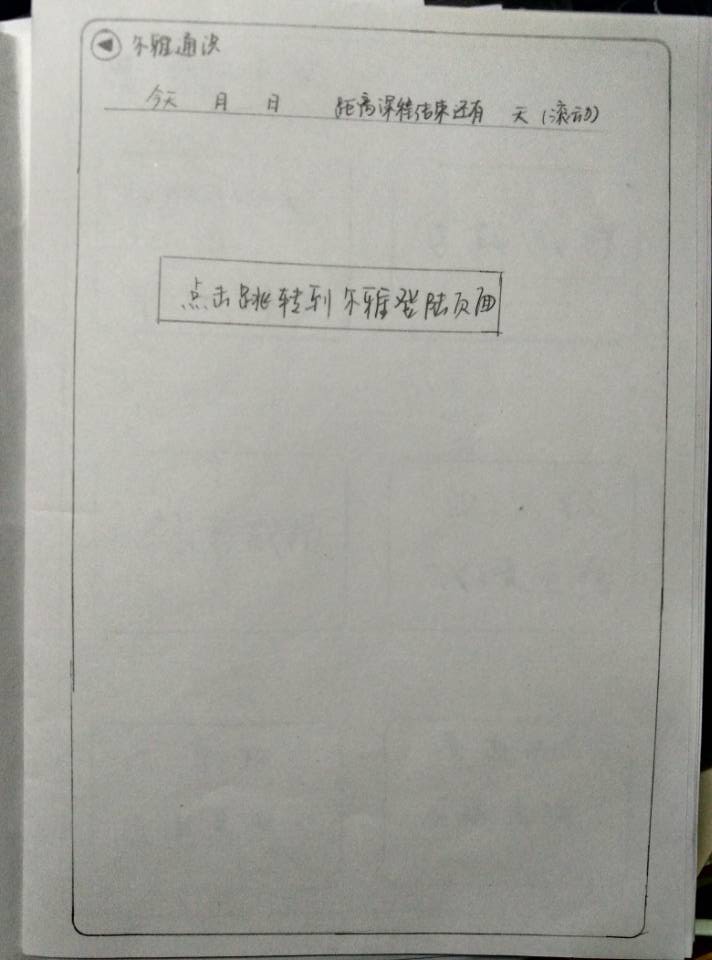 尔雅通识
今天 月 日 距离课程结束还有 天(滚动)
点击跳转到尔雅登陆页面